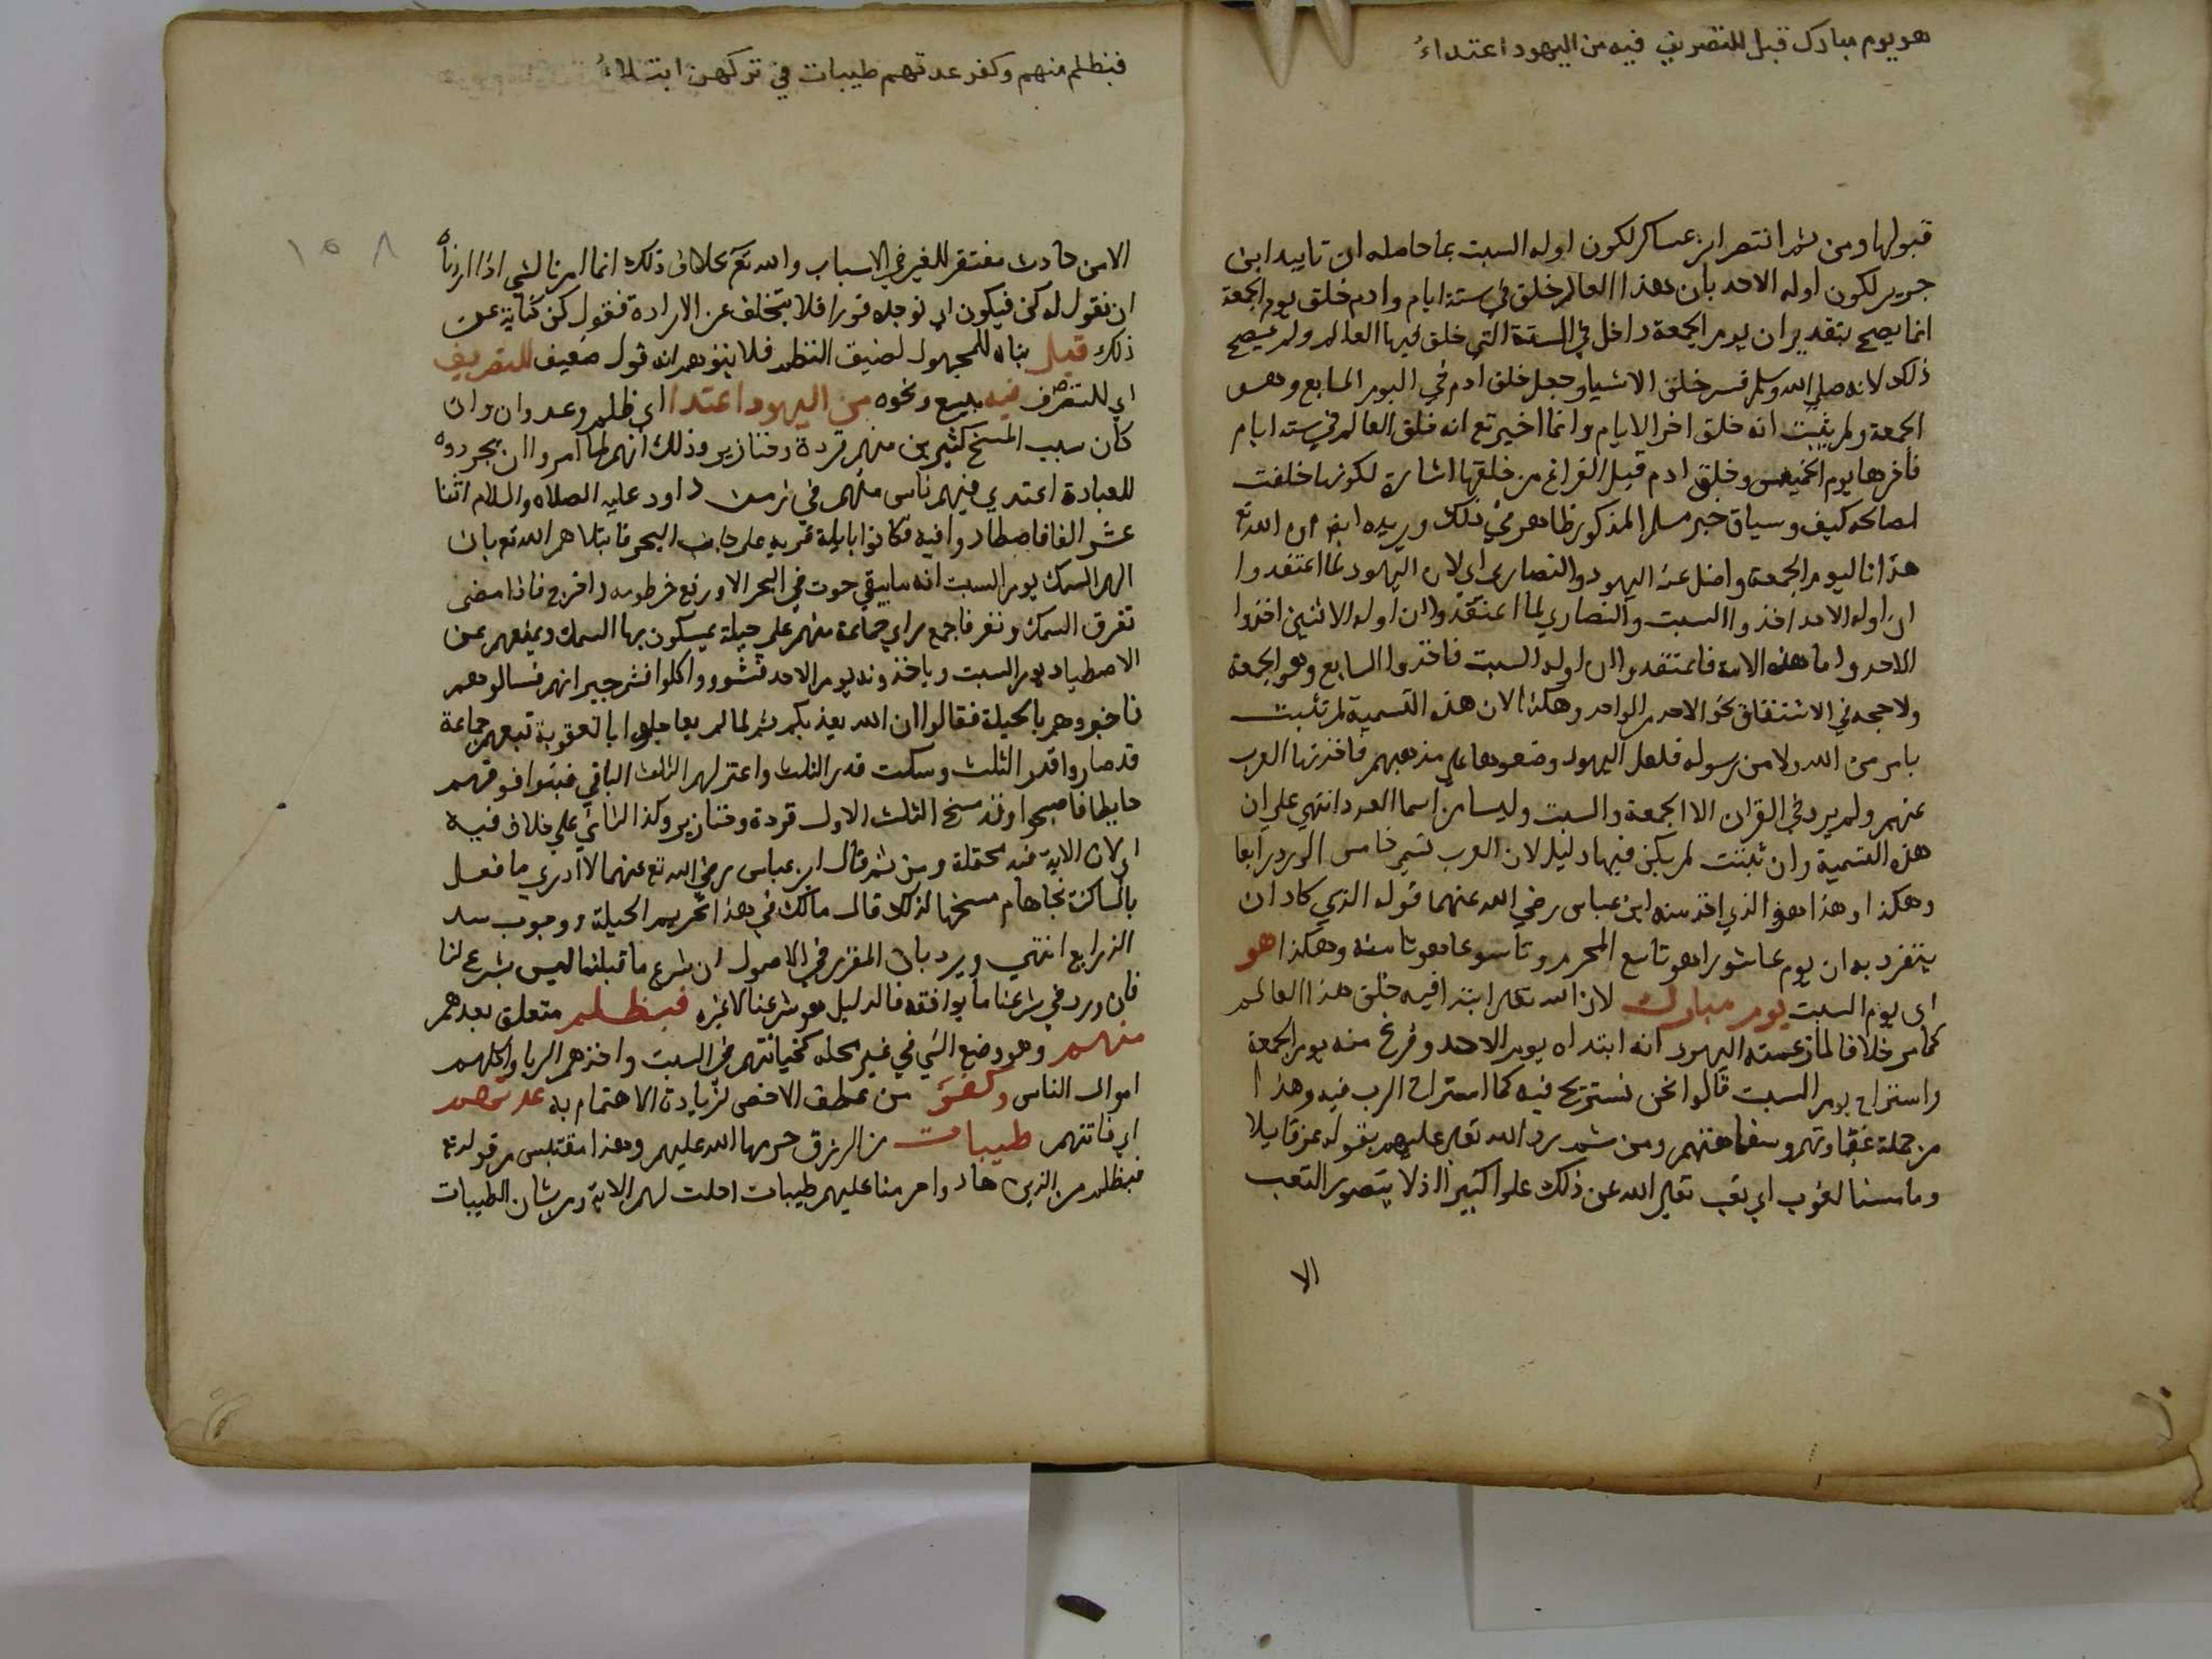 هو يوم مبارك قبل للتصريف فيه من اليهود اعتداءُ
قبولها ومن ثم انتصر ابن عساكر لكون اوله السبت بما حاصله ان تاييد ابن
جرير لكون اوله الاحد بان هذا العالم خلق في ستة ايام وادم خلق يوم الجمعة
انما يصح بتقدير ان يوم الجمعة داخل في الستة التي خلق فيها العالم ولم يصح
ذلك لانه صلي الله وسلم فسر خلق الاشيا وجعل خلق ادم في اليوم السابع وهو
الجمعة ولم يثبت انه خلق اخر الايام وانما اخبر تع انه خلق العالم في ستة ايام
فاخرها يوم الخميس وخلق ادم قبل الفراغ من خلقها اشارة لكونها خلقت
لصالحه كيف وسياق خبر مسلم المذكور ظاهر في ذلك ويريده ايضا ان الله تع
هدانا ليوم الجمعة واضل عنه اليهود والنصاري اي لان اليهود لما اعتقدوا
ان اوله الاحد اخذوا السبت والنصاري لما اعتقدوا ان اوله الاثنين اخذوا
الاحد واما هذه الامة فاعتقدوا ان اوله السبت فاخذوا السابع وهو الجمعة
ولا حجه في الاشتقاق نحو الاحد من الواحد وهكذا لان هذه التسمية لم تثبت
بامر من الله ولا من رسوله فلعل اليهود وضعوها علي مذهبهم فاخذتها العرب
عنهم ولم يرد في القران الا الجمعة والسبت وليسا من اسما العدد انتهي علي ان
هذه التسمية وان ثبتت لم يكن فيها دليل لان العرب تسمي خامس الورد رابعا
وهكذا وهذا هو الذي اخذ منه ابن عباس رضي الله عنهما قوله الذي كاد ان
ينفرد به ان يوم عاشورا هو تاسع المحرم وتاسوعا هو ثامنه وهكذا هو
اي يوم السبت يوم مبارك لان الله تعلي ابتدا فيه خلق هذا العالم
كما مر خلافا لما زعمته اليهود انه ابتداه يوم الاحد وفرغ منه يوم الجمعة
واستراح يوم السبت قالوا نحن نستريح فيه كما استراح الرب فيه وهذا
من جملة غباوتهم وسفاهتهم ومن ثم رد الله تعلي عليهم بقوله عز قايلا
وما مسنا لغوب اي تعب تعلي الله عن ذلك علوا كبيرا اذ لا يتصور التعب
الا
فبظلم منهم وكفر عدتهم طيبات في تركهن ابتلاءُ
١٥٨
الا من حادث مفتقر للغير في الاسباب والله تع بخلاف ذلك انما امرنا لشي اذا اردناه
ان نقول له كن فيكون اي نوجده فورا فلا يتخلف عن الارادة فنقول كن كناية عن
ذلك قيل بناه للمجهول لضيق النظم فلا يتوهم انه قول ضعيف للتصريف
اي للتصرف فيه ببيع ونحوه من اليهود اعتدا اي ظلم وعدوان وان
كان سبب المسخ كثيرين منهم قردة وخنازير وذلك انهم لما امروا ان يجردوه
للعبادة اعتدي فيهم ناس منهم في زمن داود عليه الصلاه والسلام اثنا
عشر الفا فاصطادوا فيه فكانوا بايلة قريه علي جانب البحر فابتلاهم الله تع بان
الهم السمك يوم السبت انه ما يبقي حوت في البحر الا ورفع خرطومه واخرج فاذا مضي
تفرق السمك ونفر فاجمع راي جماعة منهم علي حيلة يمسكون بها السمك ويمنعهم عن
الاصطياد يوم السبت وياخذونه يوم الاحد فشووا واكلوا فشم جيرانهم فسالوهم
فاخبروهم بالحيلة فقالوا ان الله يعذبكم ثم لما لم يعاجلوا بالعقوبة تبعهم جماعة
قد صاروا قدر الثلث وسكت قدر الثلث واعتزلهم الثلث الباقي فبنوا فوقهم
حايطا فاصبحوا وقد مسخ الثلث الاول قردة وخنازير وكذا الثاني علي خلاف فيه
اي لان الاية فيه محتملة ومن ثم قال ابن عباس رضي الله تع عنهما لا ادري ما فعل
بالساكتة نجاها ام مسخها لذلك قال مالك في هذا تحريم الحيلة ووجوب سد
الذرايع انتهي ويرد بان المقرر في الاصول ان شرع ما قبلنا ليس بشرع لنا
فان ورد في شرعنا ما يوافقه فالدليل هو شرعنا لا غيره فبظلم متعلق بعدهم
منهم وهو وضع الشي في غير محله كخيانتهم في السبت واخذهم الربا واكلهم
اموال الناس وكفر من عطف الاخص لزيادة الاهتمام به عدتهم
اي فاتتهم طيبات من الرزق حرمها الله عليهم وهذا مقتبس من قوله تع
فبظلم من الذين هادوا حرمنا عليهم طيبات احلت لهم الاية ومر شان الطيبات